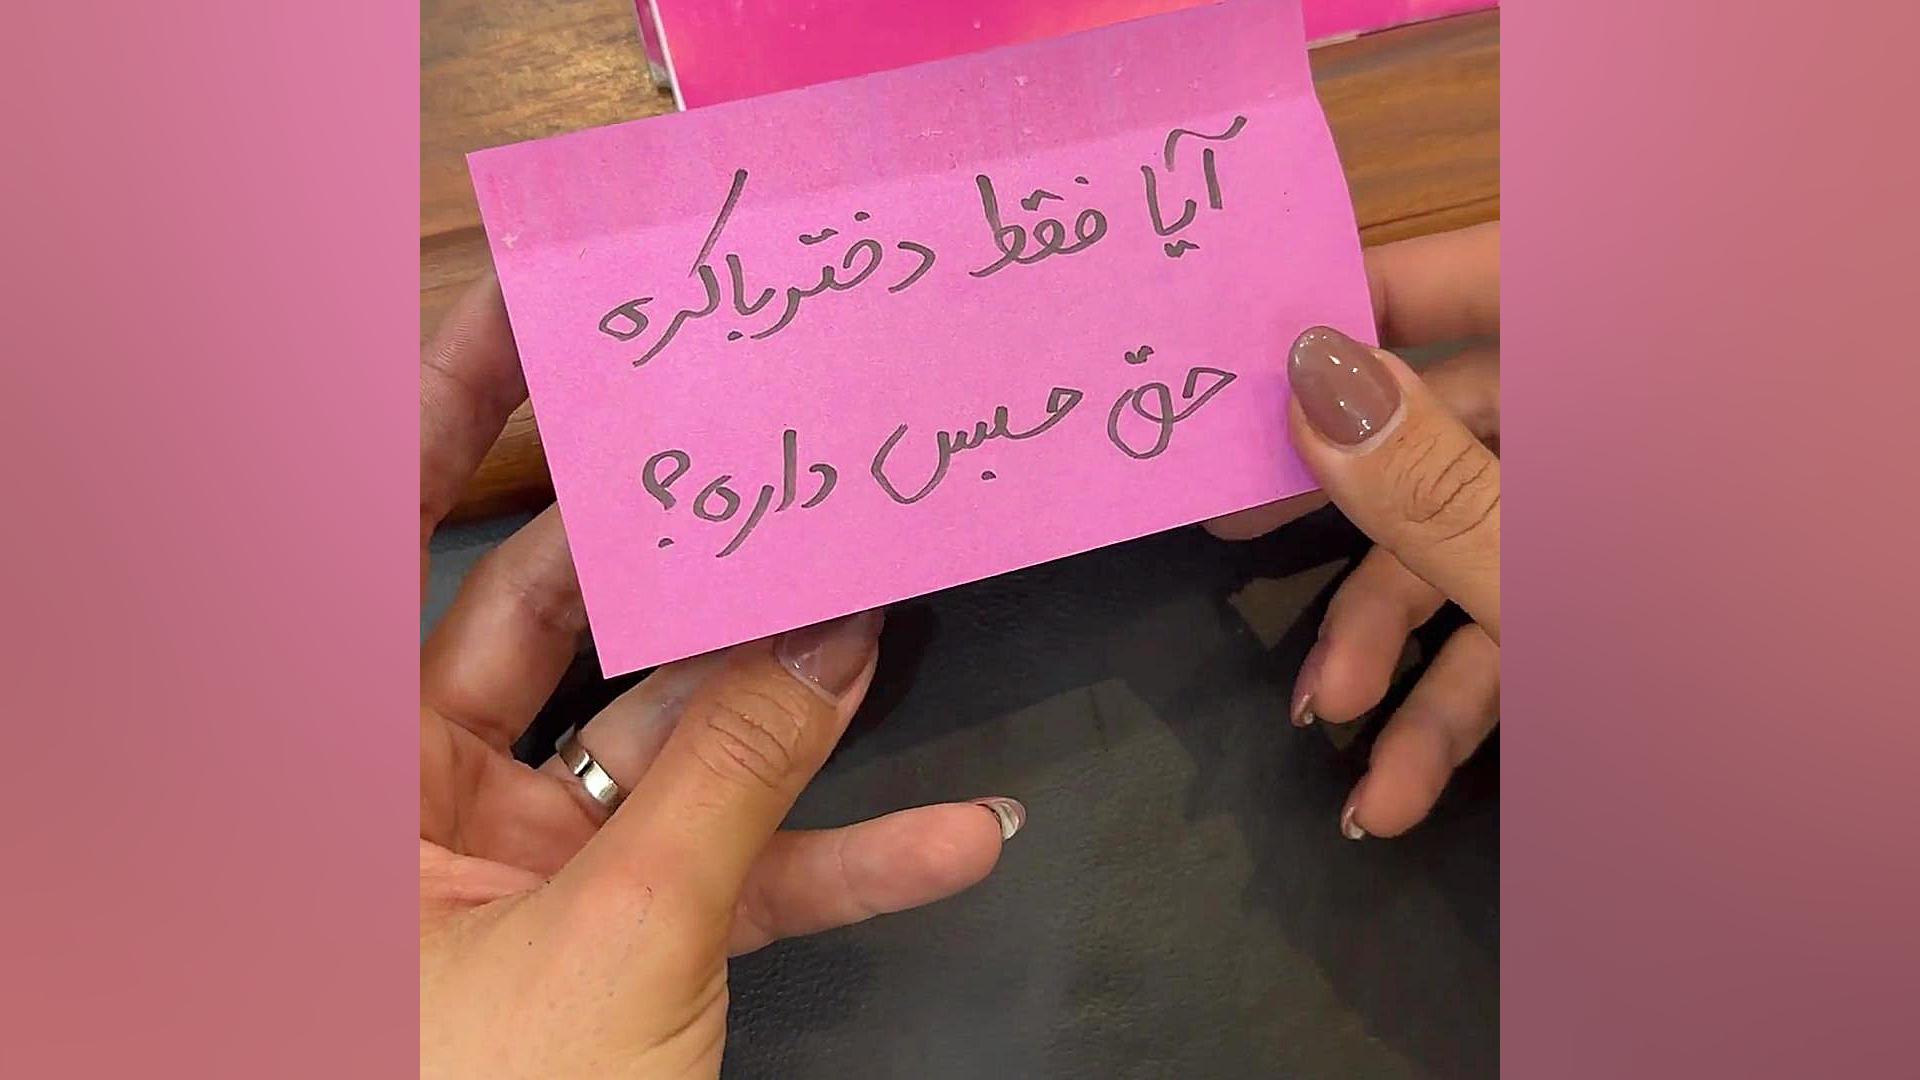 آیا فقط دختر باکره
حق حبس داره؟